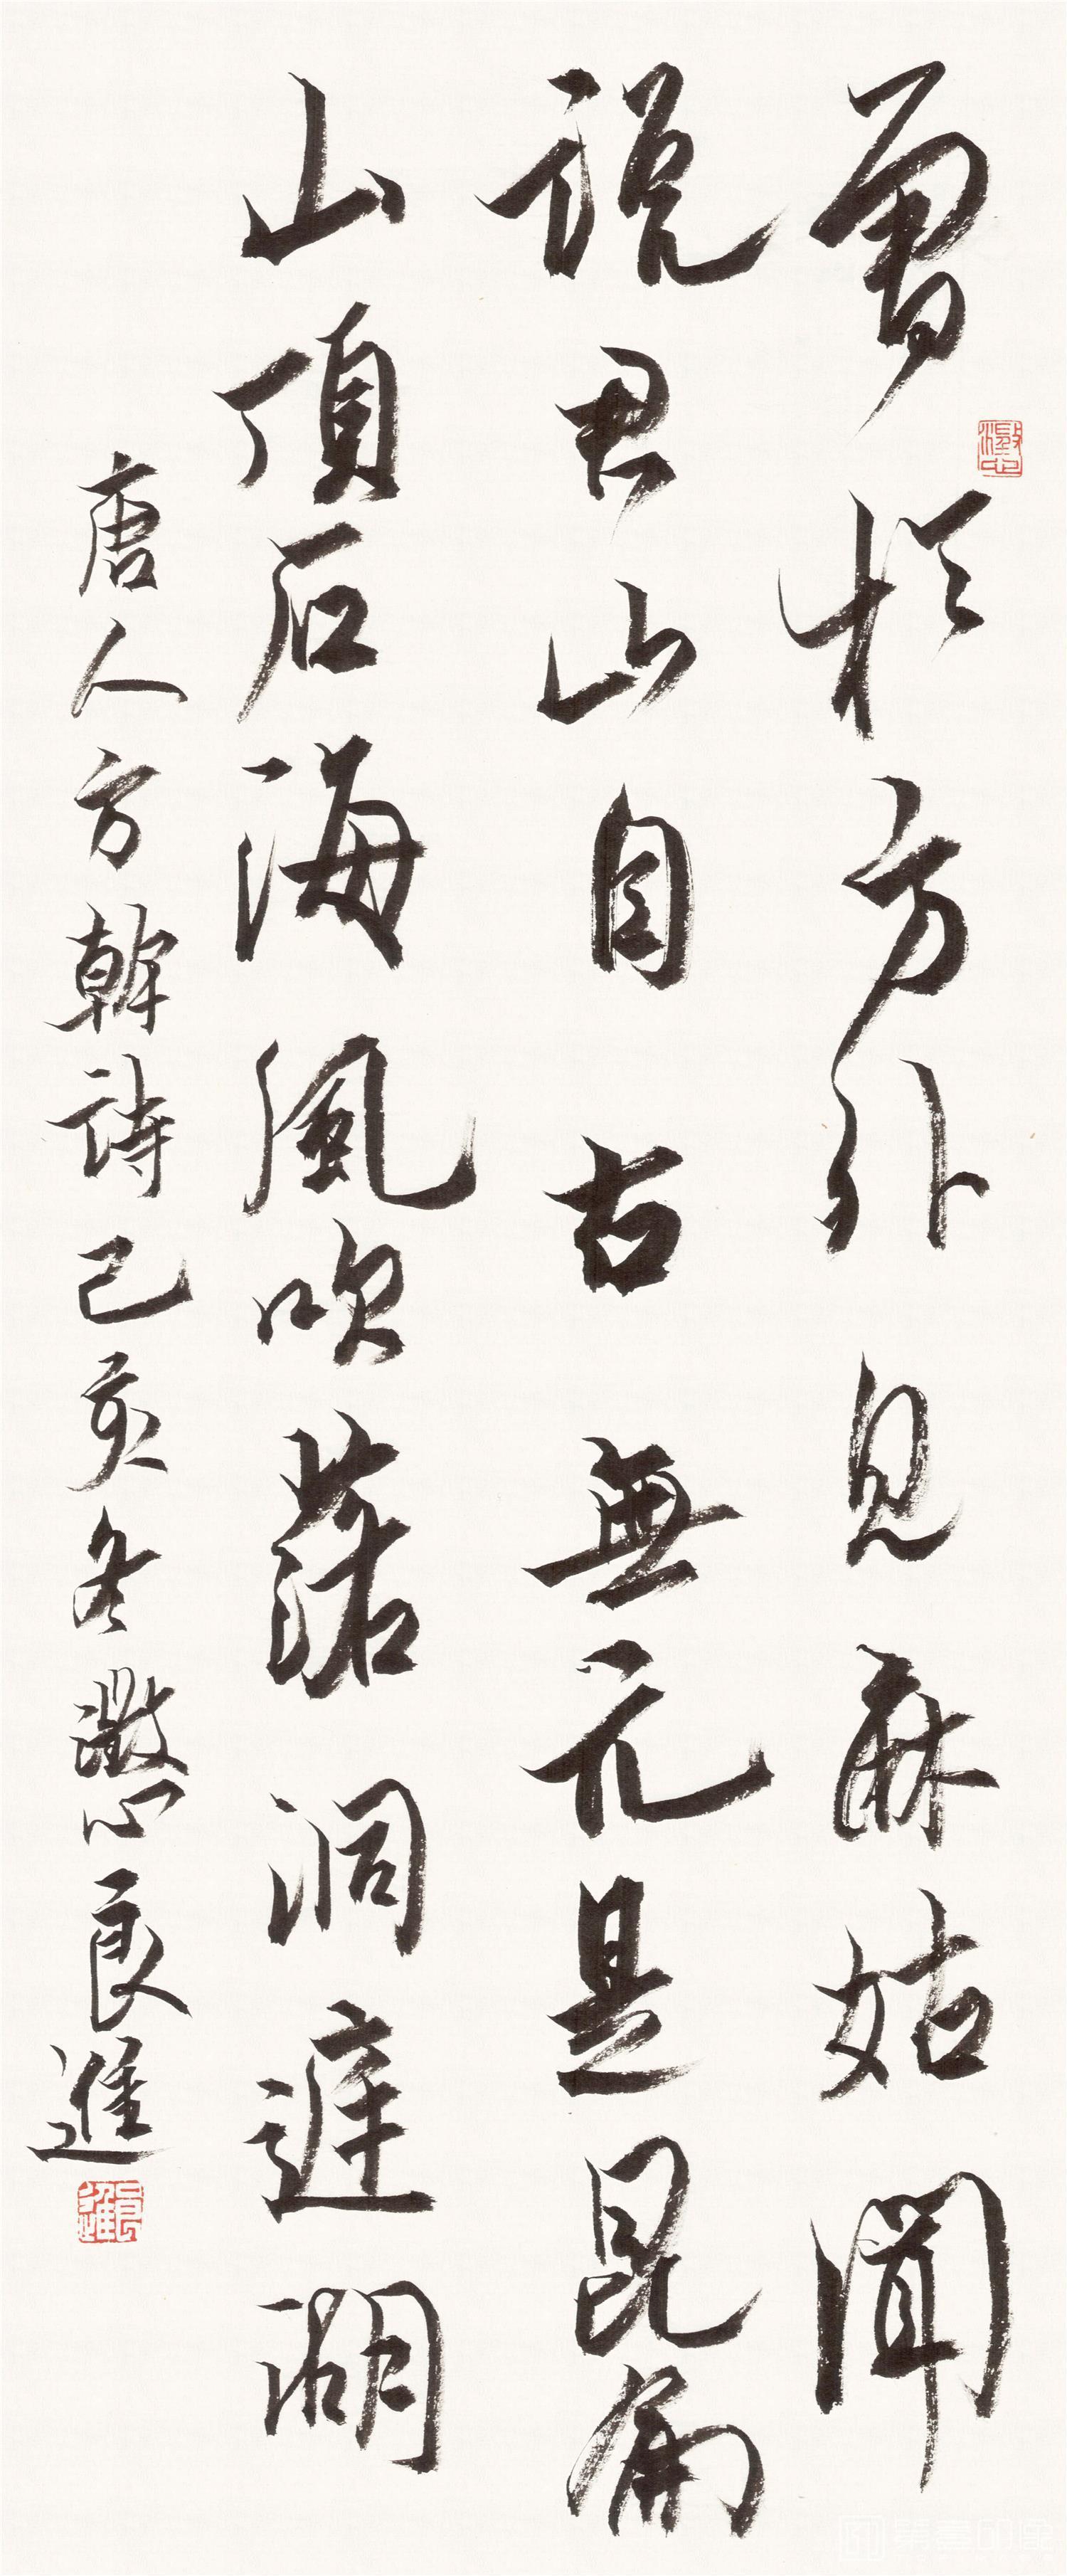 曾於方外見麻姑聞
說君山自古無元是昆侖
山頂石海風吹落洞庭湖
唐人方幹詩己亥冬澂心良進
澂心
良進